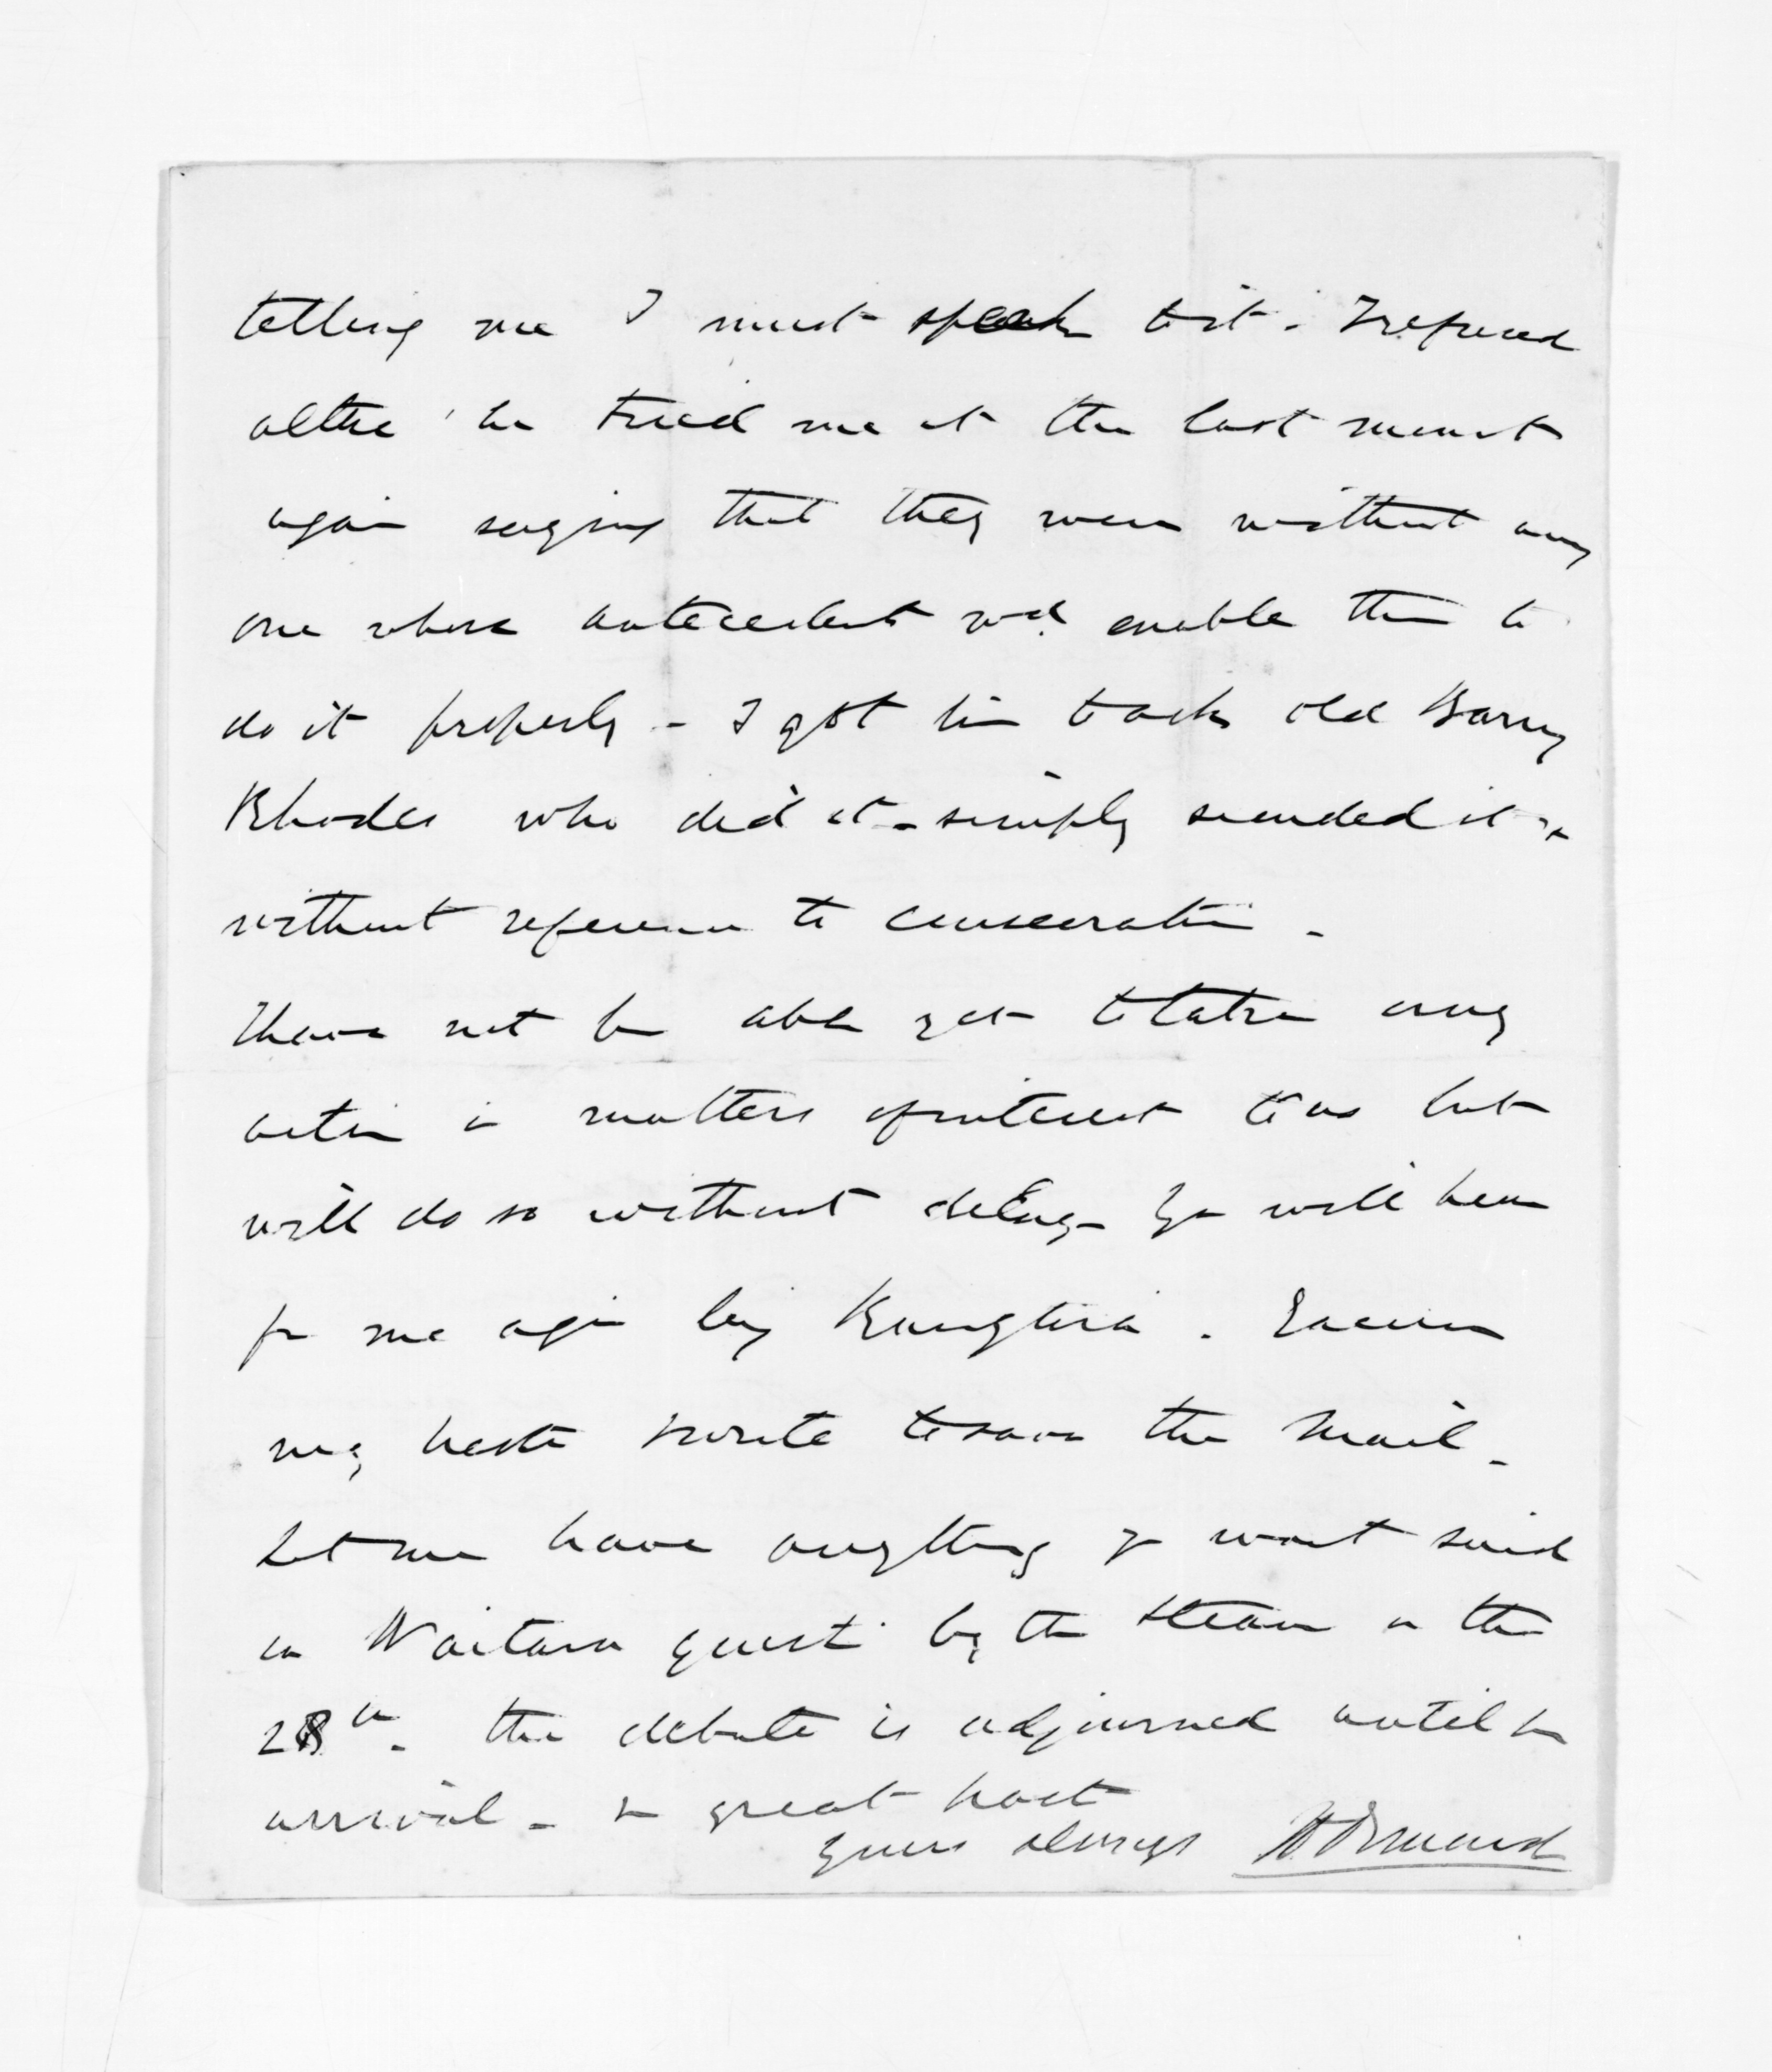 telling me I must speak to it - I refused
altho' he tried me at the last moment
again saying that they were without any
one whose antecedents wd. enable them to
do it properly - I got him to ask old Barny
Rhodes who did it - simply seconded it &
without reference to
I have not been able yet to take any
action in matters of interest to us but
will do so without delay - You will hear
fr me again by Rangatira. Excuse
my haste I write to save the Mail -
Let me have anything yr want said
on Waitara quest. by the steamer on the
28th - the debate is adjourned until her
arrival - In great haste
Yours always JD Ormond